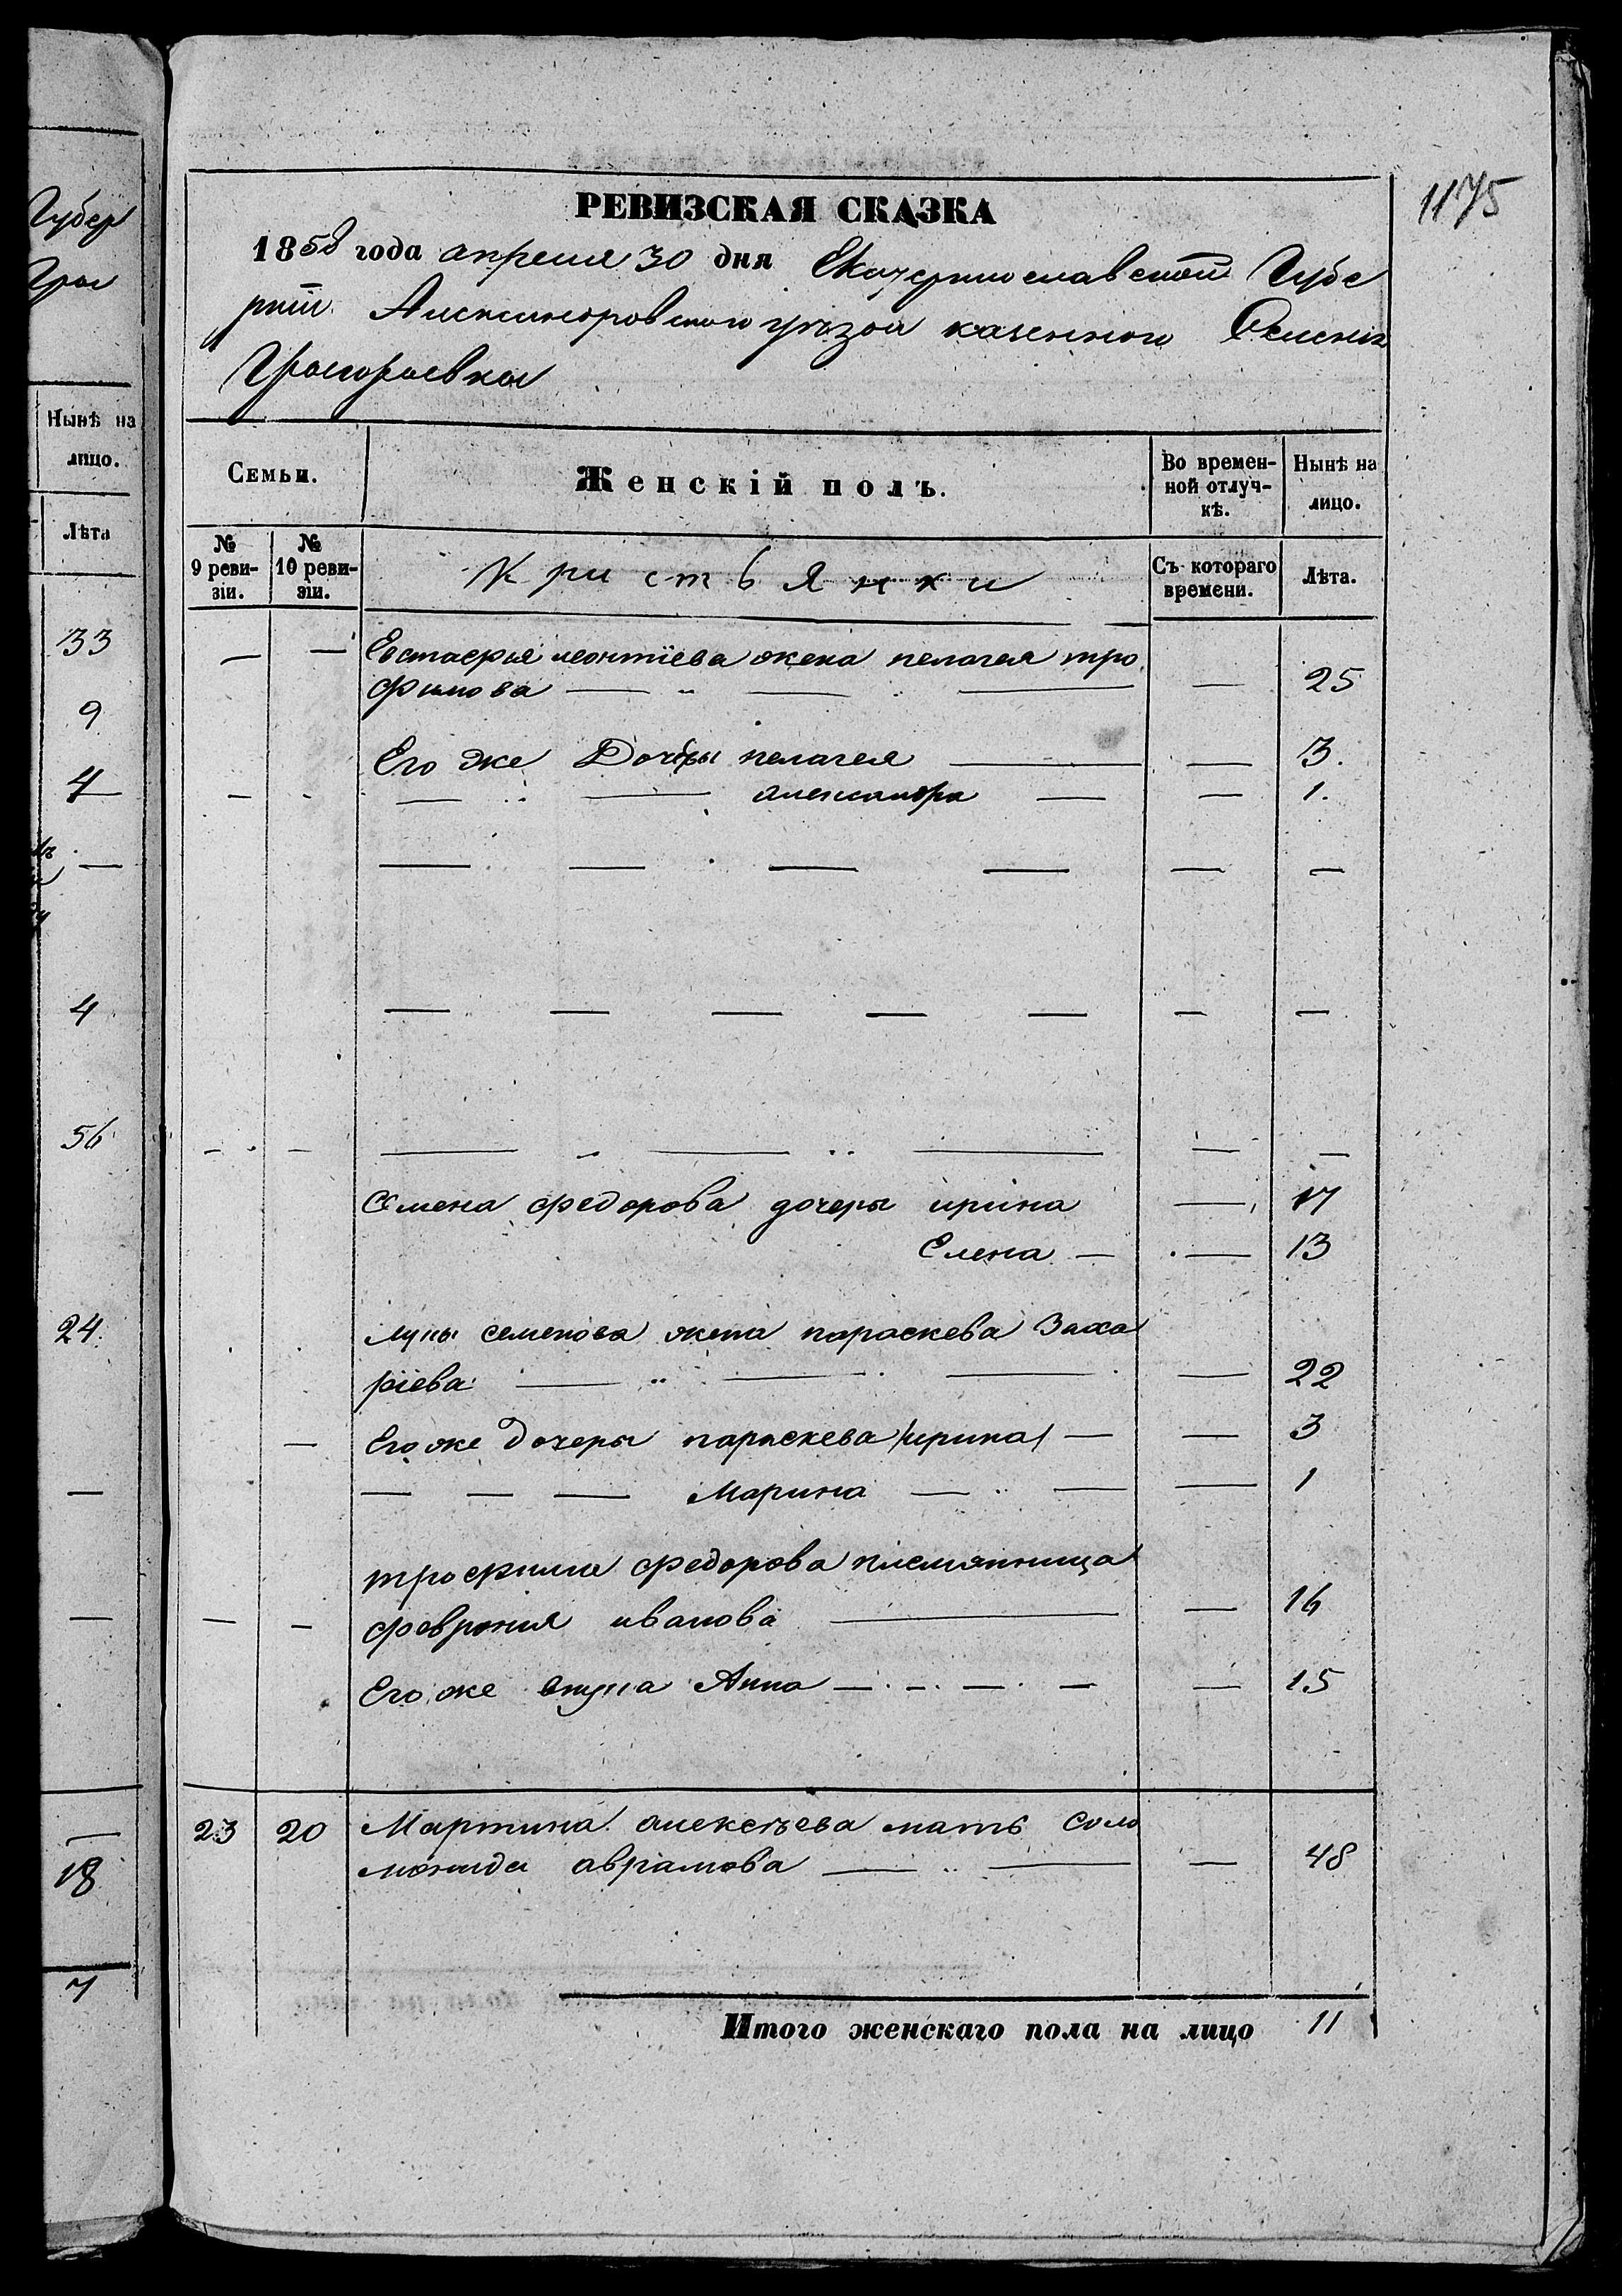 Губер
Гри
Нынѣ на
лицо.
Лѣта
33
9
4
4
56
24.
18
7
1175
РЕВИЗСКАЯ СКАЗКА
1858 года апреля 30 дня Екатеринославской Губе
рніи Александровского уѣзда казенного Селенія
Григорьевки
Семьи.
Женскій полъ.
Во времен-
ной отлуч-
кѣ.
Нынѣ на
лицо.
№
9 реви-
зіи.
№
10 реви-
зіи.
Кристьянки
Съ котораго
времени.
Лѣта.
Евстафья леонтіева жена пелагея тро
фимова — — — 25
Его же Дочеры пелагея — — 3.
— — александра — — 1.
— — — — — —
— — — — — — —
— — — — — — —
Семена федорова дочеры ирина — 17
Елена — — 13
Луки семенова жена параскева Заха
ріева — — — — 22
Его же дочеры параскева /ирина/ — — 3
— — — Марина — — — 1
трофима федорова племянница
феврония иванова — — 16
Его же внука Анна — — — — — 15
23 20 Мартина алексѣева мать Соло
монида авраамова — — — 48
Итого женскаго пола на лицо 11